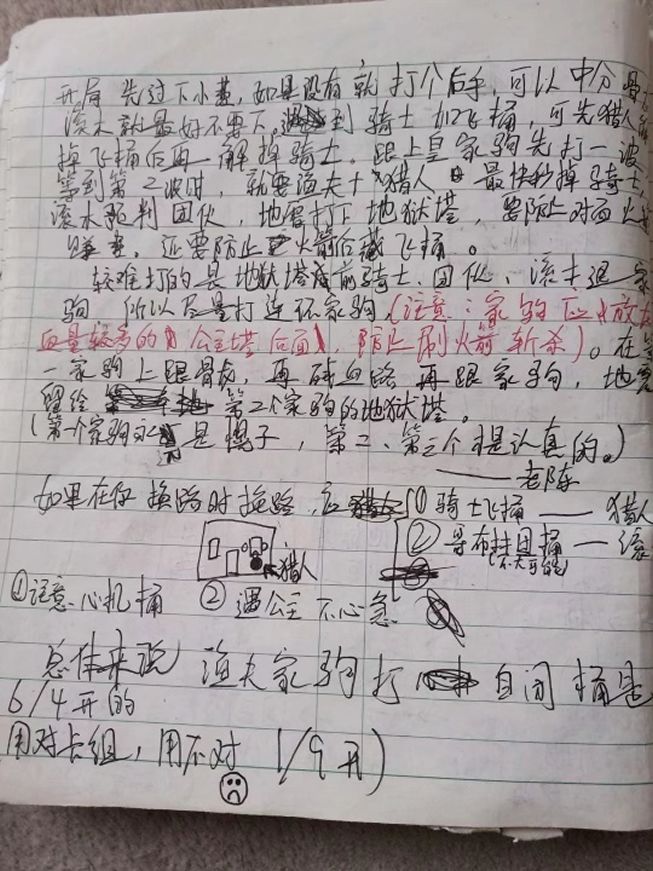 开局 先过下小费，如果没有就 打个后手，可以中分 骨龙
滚木就最好不要下，遇到 骑士 加飞桶，可先猎人解
掉飞桶后再一解掉骑士。跟上皇家驹先打一波
等到第二波时，就要渔夫十猎人 最快秒掉骑士
滚木预判 团伙，地震打下 地狱塔，要防止对面火箭
赚费，还要防止火箭后藏飞桶。
较难打的是地狱塔前骑士、团伙、滚木退 家
驹，所以尽量打连环家驹，(注意：家驹应中放在
血量较多的 公主塔 后面，防止刷火箭斩杀)。在第
一家驹上跟骨龙，再 血路 再跟家驹，地震
留给 第二个家驹的地狱塔。
(第一个家驹永远是幌子，第二、第三个才是认真的。)
——老陈
如果在你 换路时 拖路，应 ① 骑士飞桶 —— 猎人
② 哥布林团桶 — 滚
(不大可能)
猎人
①注意心机桶 ② 遇公主 不心急
总体来说 渔夫家驹 打 自闭 桶是
6/4开的
用对卡组，用不对 1/9 开)